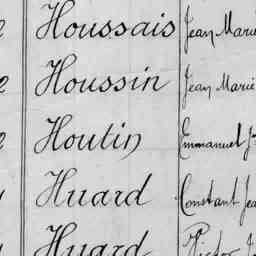 Houssais Jean Marie
Houssin Jean Marie
Houtin Emmanuel
Huard Constant
Huard Victor